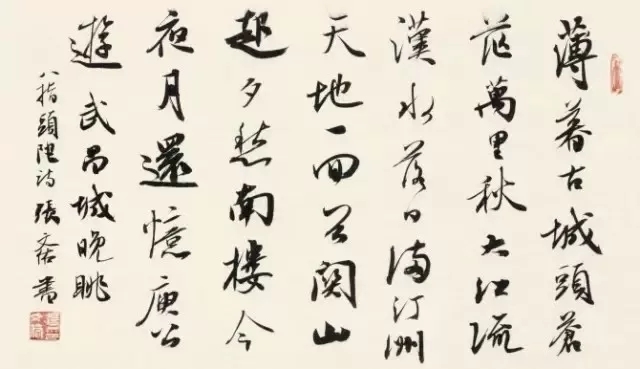 薄暮古城頭蒼
茫萬里秋大江流
漢水落日滿汀洲
天地一回首關山
起夕愁南樓今
夜月還憶庾公
遊 武昌城晚眺
八指頭陀詩張書